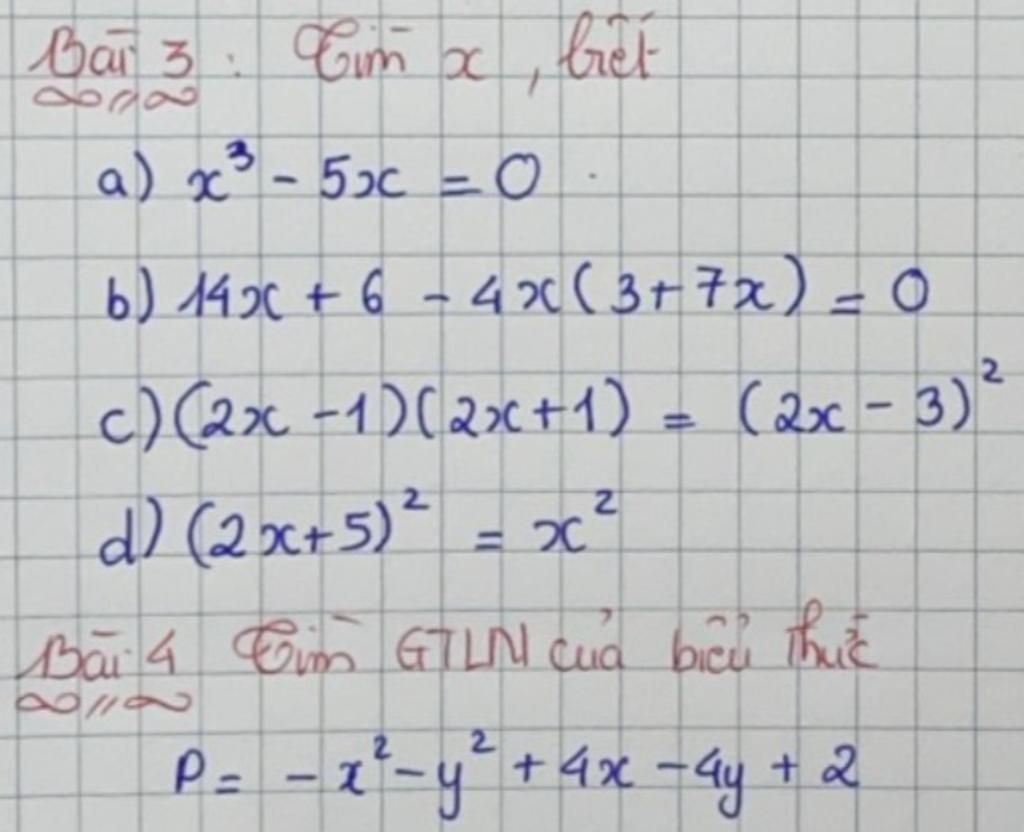 Bài 3 : Tìm x , biết
a) x³ - 5x = 0
b) 14x + 6 - 4x(3+7x) = 0
c) (2x - 1)(2x+1) = (2x - 3)²
d) (2x+5)² = x²
Bài 4 Tìm GTLN của biểu thức
P = - x² - y² + 4x - 4y + 2